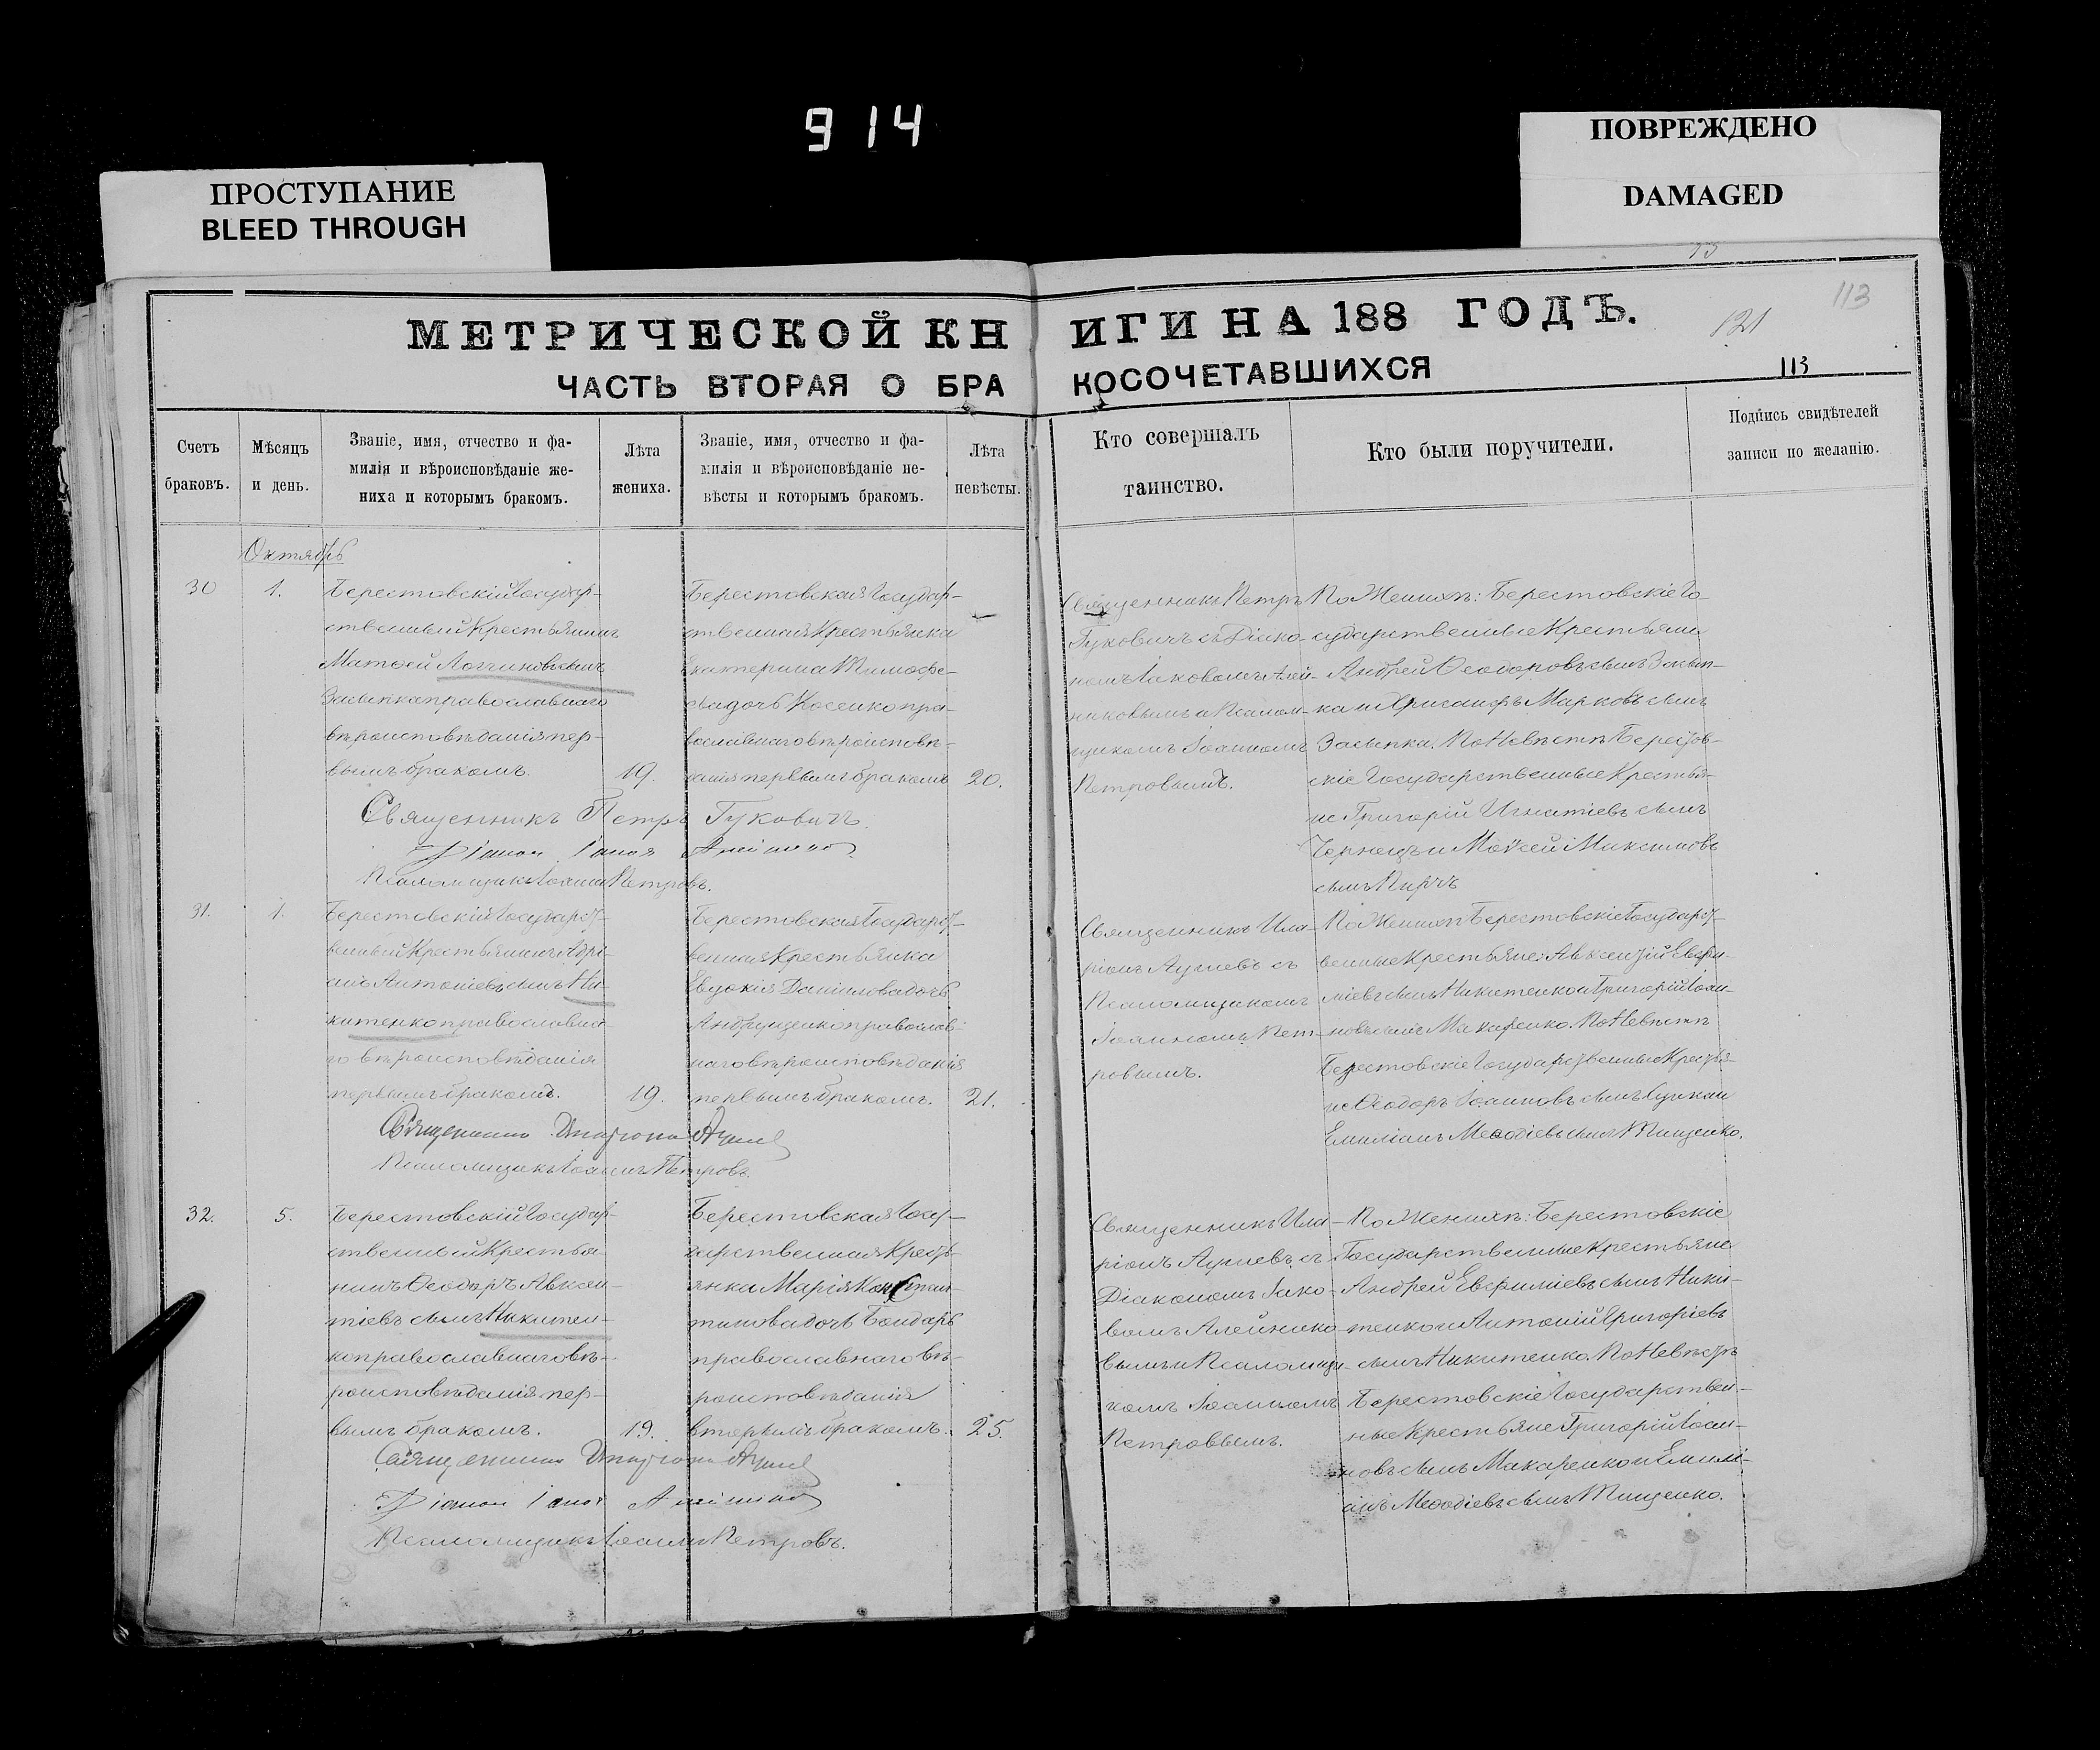 914
ПРОСТУПАНИЕ
BLEED THROUGH
ПОВРЕЖДЕНО
DAMAGED
113
121
113
МЕТРИЧЕСКОЙ КН ИГИ НА 188 ГОДЪ.
ЧАСТЬ ВТОРАЯ О БРА КОСОЧЕТАВШИХСЯ
Счетъ
браковъ.
Мѣсяцъ
и день.
Званіе, имя, отчество и фа-
милія и вѣроисповѣданіе же-
ниха и которымъ бракомъ.
Лѣта
жениха.
Званіе, имя, отчество и фа-
милія и вѣроисповѣданіе не-
вѣсты и которымъ бракомъ.
Лѣта
невѣсты.
Кто совершалъ
таинство.
Кто были поручители.
Подпись свидѣтелей
записи по желанію.
Октябрь
30
1.
Берестовскій Государ-
ственный Крестьянинъ
Матвей Логгиновъ сынъ
Засыпка православнаго
вѣроисповѣданія пер-
вымъ бракомъ.
19.
Берестовская Государ-
ственная Крестьянка
Екатерина Тимофе-
ева дочь Косенко пра-
вославнаго вѣроисповѣ-
данія первымъ бракомъ
20.
Священникъ Петръ
Гуковичъ съ Діако-
номъ Іаковомъ Алей-
никовымъ и Псалом-
щикомъ Іоанномъ
Петровымъ.
По Женихѣ: Берестовскіе Го-
сударственные Крестьяне
Андрей Ѳеодоровъ сынъ Засып-
ка и Хрисанфъ Марковъ сынъ
Засыпка. По Невѣстѣ Берестов-
скіе Государственные Крестья-
не Григорій Игнатіевъ сынъ
Чернецъ и Моѵсей Максимовъ
сынъ
Священникъ Петръ Гуковичъ.
Діакон Іаков Алейников
Псаломщикъ Іоаннъ Петровъ.
31.
1.
Берестовскій Государст-
венный Крестьянинъ Адрі-
анъ Антоніевъ сынъ Ни-
китенко православна-
го вѣроисповѣданія
первымъ бракомъ.
19.
Берестовская Государст-
венная Крестьянка
Евдокія Даніилова дочь
Андрущенко православ-
наго вѣроисповѣданія
первымъ бракомъ.
21.
Священникъ Ила-
ріонъ съ
Псаломщикомъ
Іоанномъ Пет-
ровымъ.
По Женихѣ Берестовскіе Государст-
венные Крестьяне: Авксентій Евфи-
міевъ сынъ Никитенко и Григорій Іоан-
новъ сынъ Макаренко. По Невѣстѣ
Берестовскіе Государственные Крестья-
не Ѳеодоръ Іоанновъ сынъ и
Емиліанъ Меѳодіевъ сынъ Тищенко.
Священникъ Иларіонъ
Псаломщикъ Іоаннъ Петровъ.
32.
5.
Берестовскій Государ-
ственный Крестья-
нинъ Ѳеодоръ Авксен-
тіевъ сынъ Никитен-
ко православнаго вѣ-
роисповѣданія пер-
вымъ бракомъ.
19.
Берестовская Госу-
дарственная Кресть-
янка Марія Констан-
тинова дочь Бондарь
православнаго вѣ-
роисповѣданія
вторымъ бракомъ.
25.
Священникъ Ила-
ріонъ съ
Діакономъ Іако-
вомъ Алейнико-
вымъ и Псаломщи-
комъ Іоанномъ
Петровымъ.
По Женихѣ: Берестовскіе
Государственные Крестьяне
Андрей Евфиміевъ сынъ Ники-
тенко и Антоній Григоріевъ
сынъ Никитенко. По Невѣстѣ
Берестовскіе Государствен-
ные Крестьяне Григорій Іоан-
новъ сынъ Макаренко и Емилі-
анъ Меѳодіевъ сынъ Тищенко.
Священникъ Иларіонъ
Діакон Іаков Алейников
Псаломщикъ Іоаннъ Петровъ.